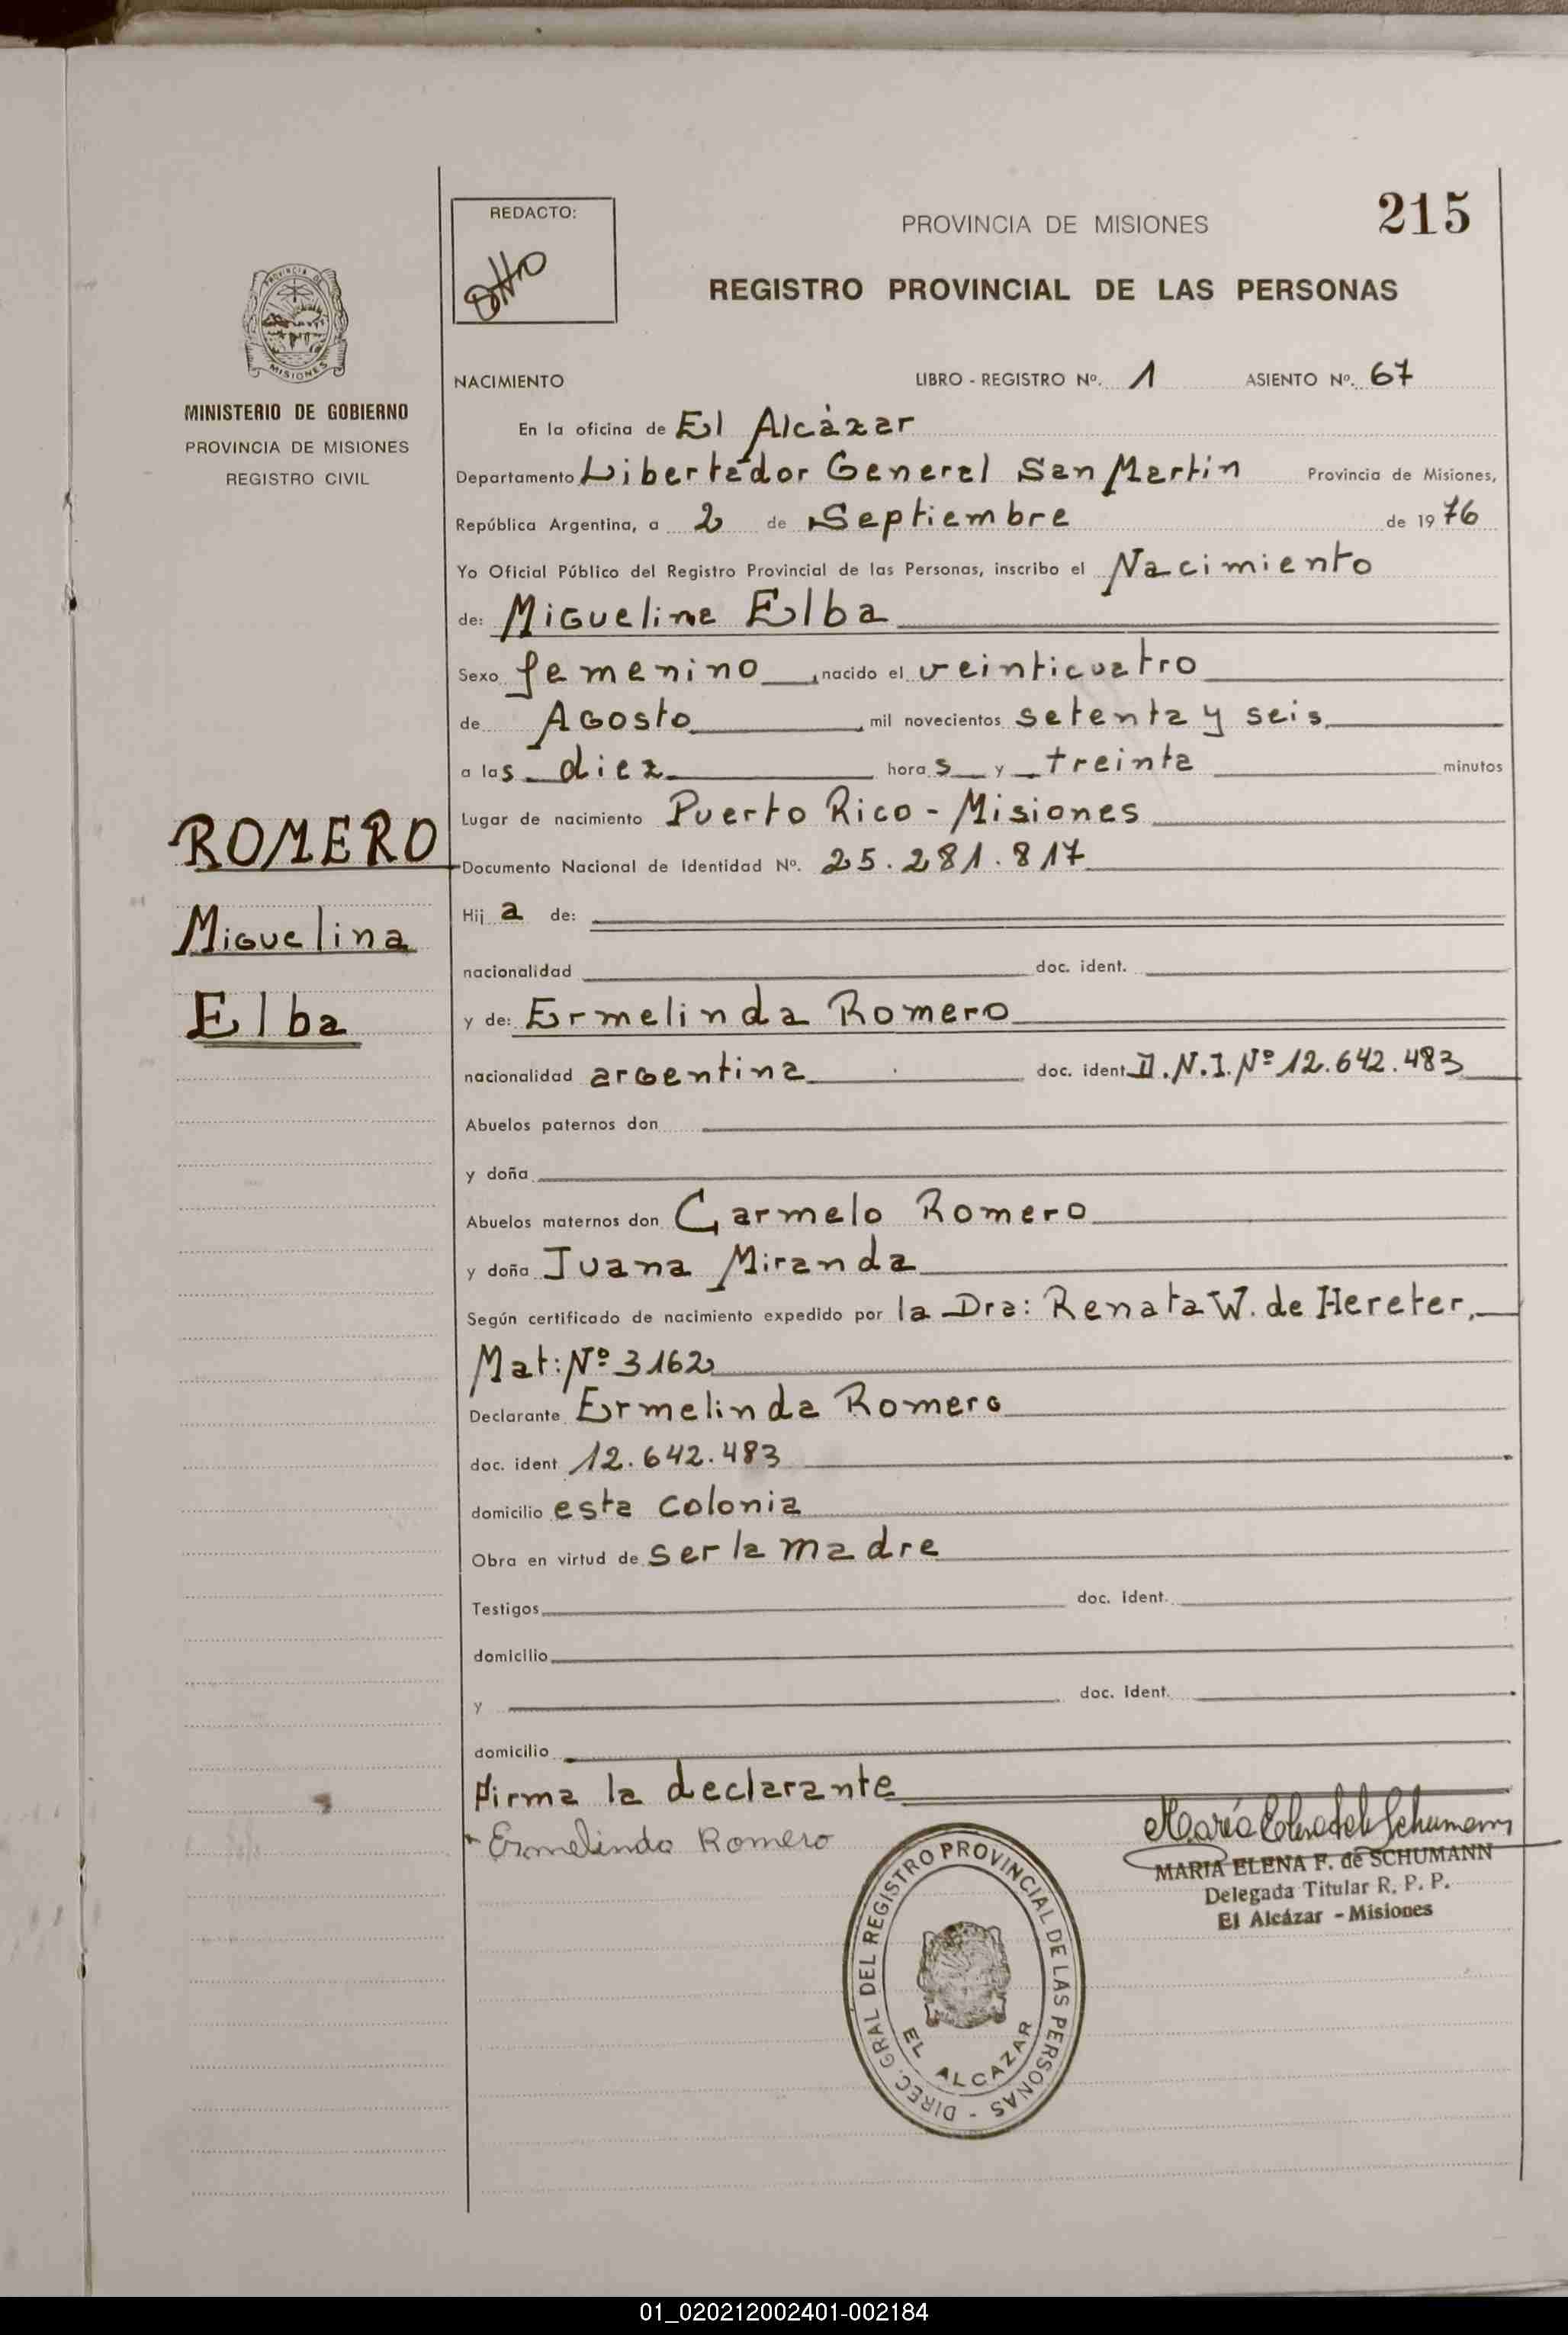 215
REDACTO:
PROVINCIA DE MISIONES
REGISTRO PROVINCIAL DE LAS PERSONAS
PROVINCIA DE
MISIONES
MINISTERIO DE GOBIERNO
PROVINCIA DE MISIONES
REGISTRO CIVIL
NACIMIENTO LIBRO - REGISTRO Nº. 1 ASIENTO Nº. 67
En la oficina de El Alcázar
Departamento Libertador General San Martín Provincia de Misiones,
República Argentina, a 2 de Septiembre de 1976
Yo Oficial Público del Registro Provincial de las Personas, inscribo el Nacimiento
de: Miguelina Elba
Sexo femenino, nacido el veinticuatro
de Agosto, mil novecientos setenta y seis,
a las diez horas y treinta minutos
Lugar de nacimiento Puerto Rico - Misiones
ROMERO
Miguelina
Elba
Documento Nacional de Identidad Nº. 25.281.817
Hija de:
nacionalidad doc. ident.
y de: Ermelinda Romero
nacionalidad argentina doc. ident. D.N.I. Nº 12.642.483
Abuelos paternos don
y doña
Abuelos maternos don Carmelo Romero
y doña Juana Miranda
Según certificado de nacimiento expedido por la Dra: Renata W. de Hereter,
Mat: Nº 3162
Declarante Ermelinda Romero
doc. ident 12.642.483
domicilio esta colonia
Obra en virtud de ser la madre
Testigos doc. ident.
domicilio
y doc. ident.
domicilio
Firma la declarante
Ermelinda Romero
MARIA ELENA F. de SCHUMANN
Delegada Titular R. P. P.
El Alcázar - Misiones
DIREC. GRAL DEL REGISTRO PROVINCIAL DE LAS PERSONAS -
EL ALCAZAR
01_020212002401-002184